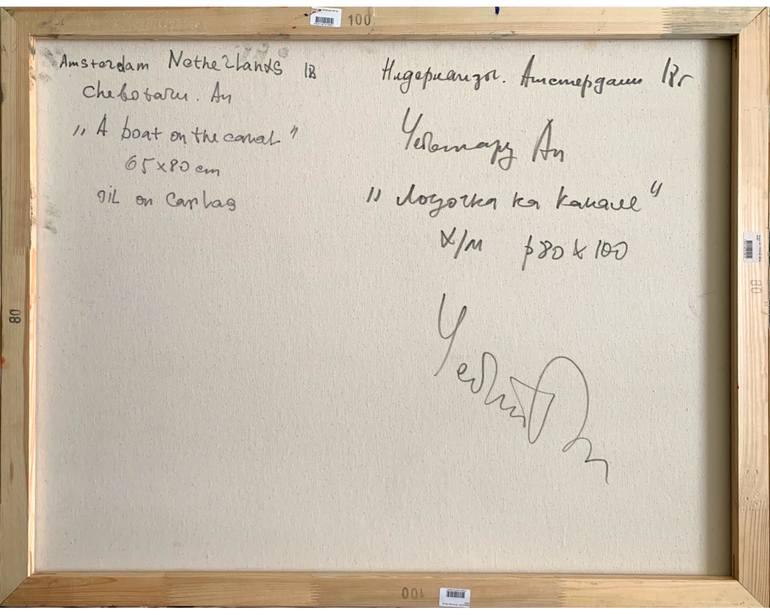 100
Amsterdam Netherlands 18
Chebotaru. An
„ A boat on the canal "
65x80 cm
oil on canvas
Нидерланды. Амстердам 18г
Чеботару Ан
" Лодочка на канале "
х/м р 80 х 100
80
80
100